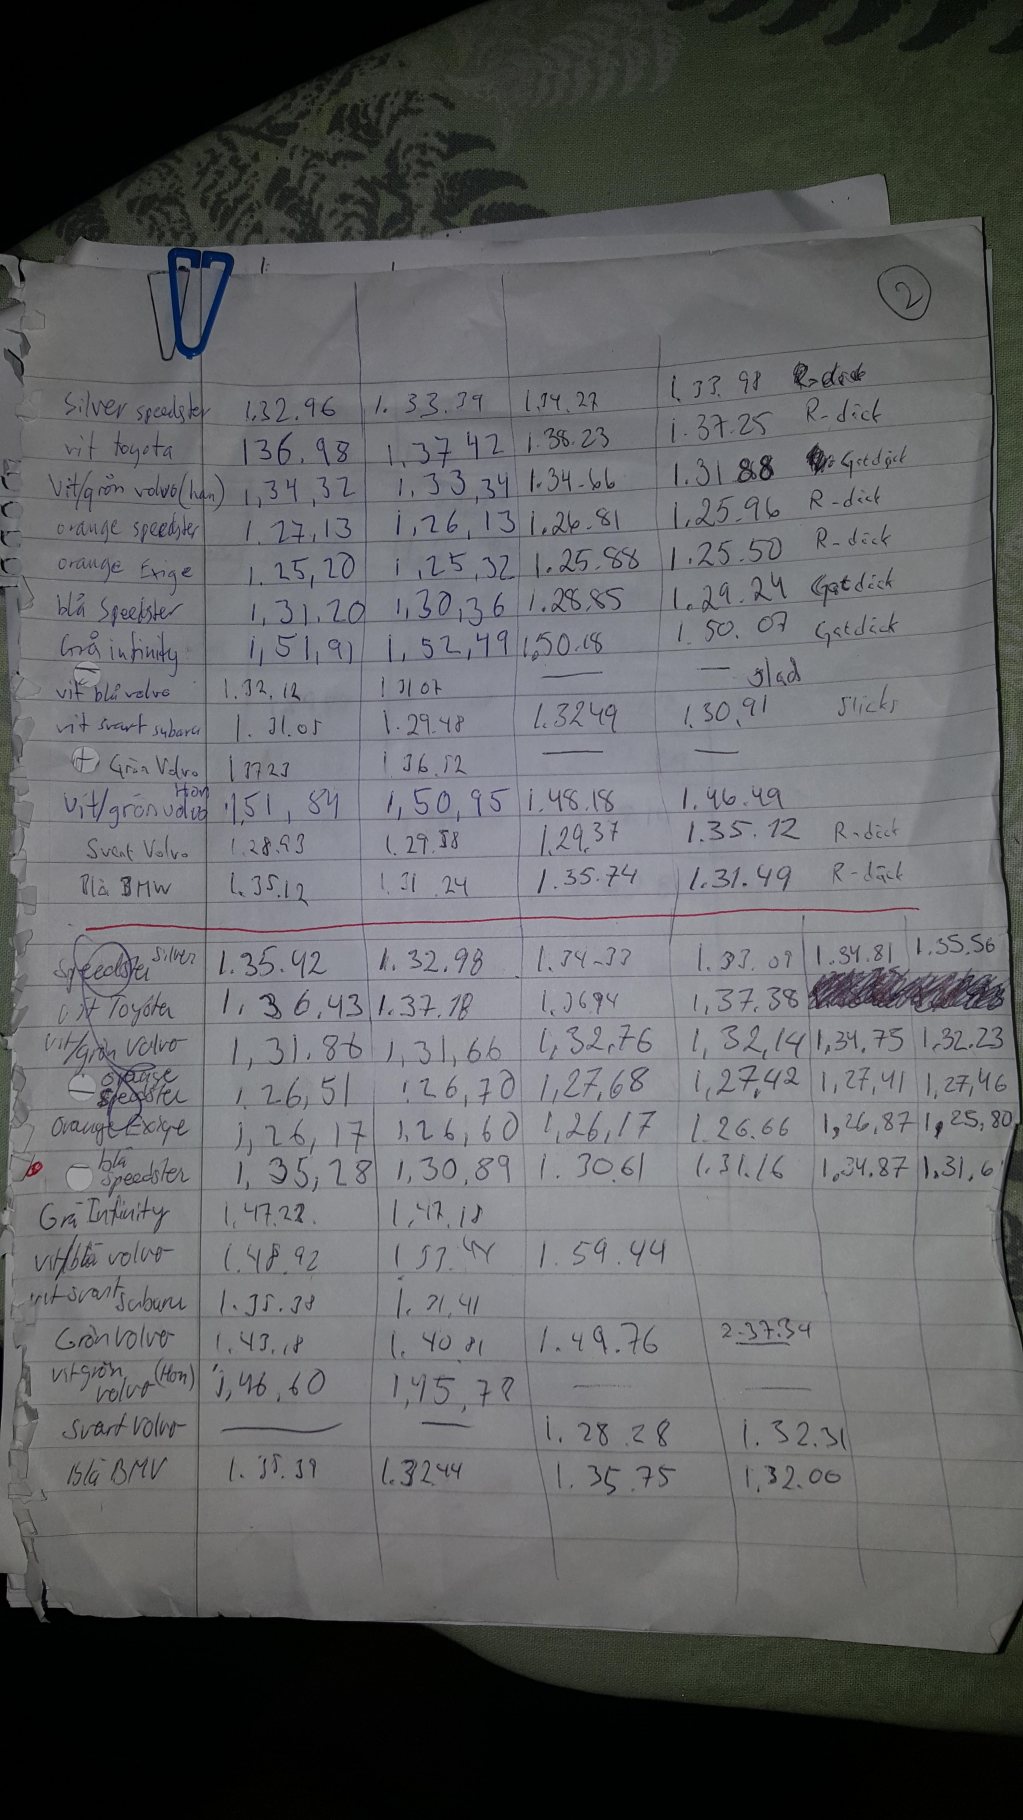 2
Silver speedster 1.32.96 1.33.39 1.34.27 1.33.98 R-däck
vit toyota 136.98 1.37 42 1.38.23 1.37.25 R-däck
Vit/grön volvo (han) 1,34,32 1.33,34 1.34.66 1.31 88 Gatdäck
orange speedster 1.27,13 1,26,13 1.26.81 1.25.96 R-däck
orange Exige 1.25,20 1,25,32 1.25.88 1.25.50 R-däck
blå Speedster 1,31.20 1,30,36 1.28.85 1.29.24 Gatdäck
Grå infinity 1,51,91 1,52,49 1,50.18 1.50.07 Gatdäck
vit blå volvo 1.32.12 1 31 07 — —
vit svart subaru 1.31.05 1.29.48 1.3249 1.30,91 slicks
+ Grön Volvo 1 37 23 1 36.52 — —
Vit/grön volvo Hon 1,51,84 1,50,95 1.48.18 1.46.49
Svart Volvo 1.28.93 1.29.58 1.29,37 1.35.12 R-däck
Blå BMW 1.35.12 1.31.24 1.35.74 1.31.49 R-däck
Speedster silver 1.35.42 1.32.98 1.34.33 1.33.09 1.34.81 1.35.56
vit Toyota 1.36,43 1.37.18 1.3694 1,37.38
vit/grön volvo 1,31.86 1,31,66 1,32,76 1,32,14 1,34,75 1,32.23
orange speedster 1.26,51 1.26,70 1,27,68 1,27,42 1,27,41 1,27,46
orange Exige 1,26,17 1,26,60 1,26,17 1.26.66 1,26,87 1,25,80
blå speedster 1,35,28 1,30,89 1.30.61 1.31.16 1,34.87 1,31,6
Grå Infinity 1,47.28 1,47.18
vit/blå volvo 1.48.92 1 53.44 1.59.44
vit svart subaru 1.35.38 1.31,41
Grön volvo 1.43.18 1.40.81 1.49.76 2.37.34
vit grön volvo (Hon) 1,46,60 1,45,78 — —
Svart volvo — — 1.28.28 1.32.31
Blå BMV 1.35.39 1.3244 1.35.75 1,32.00